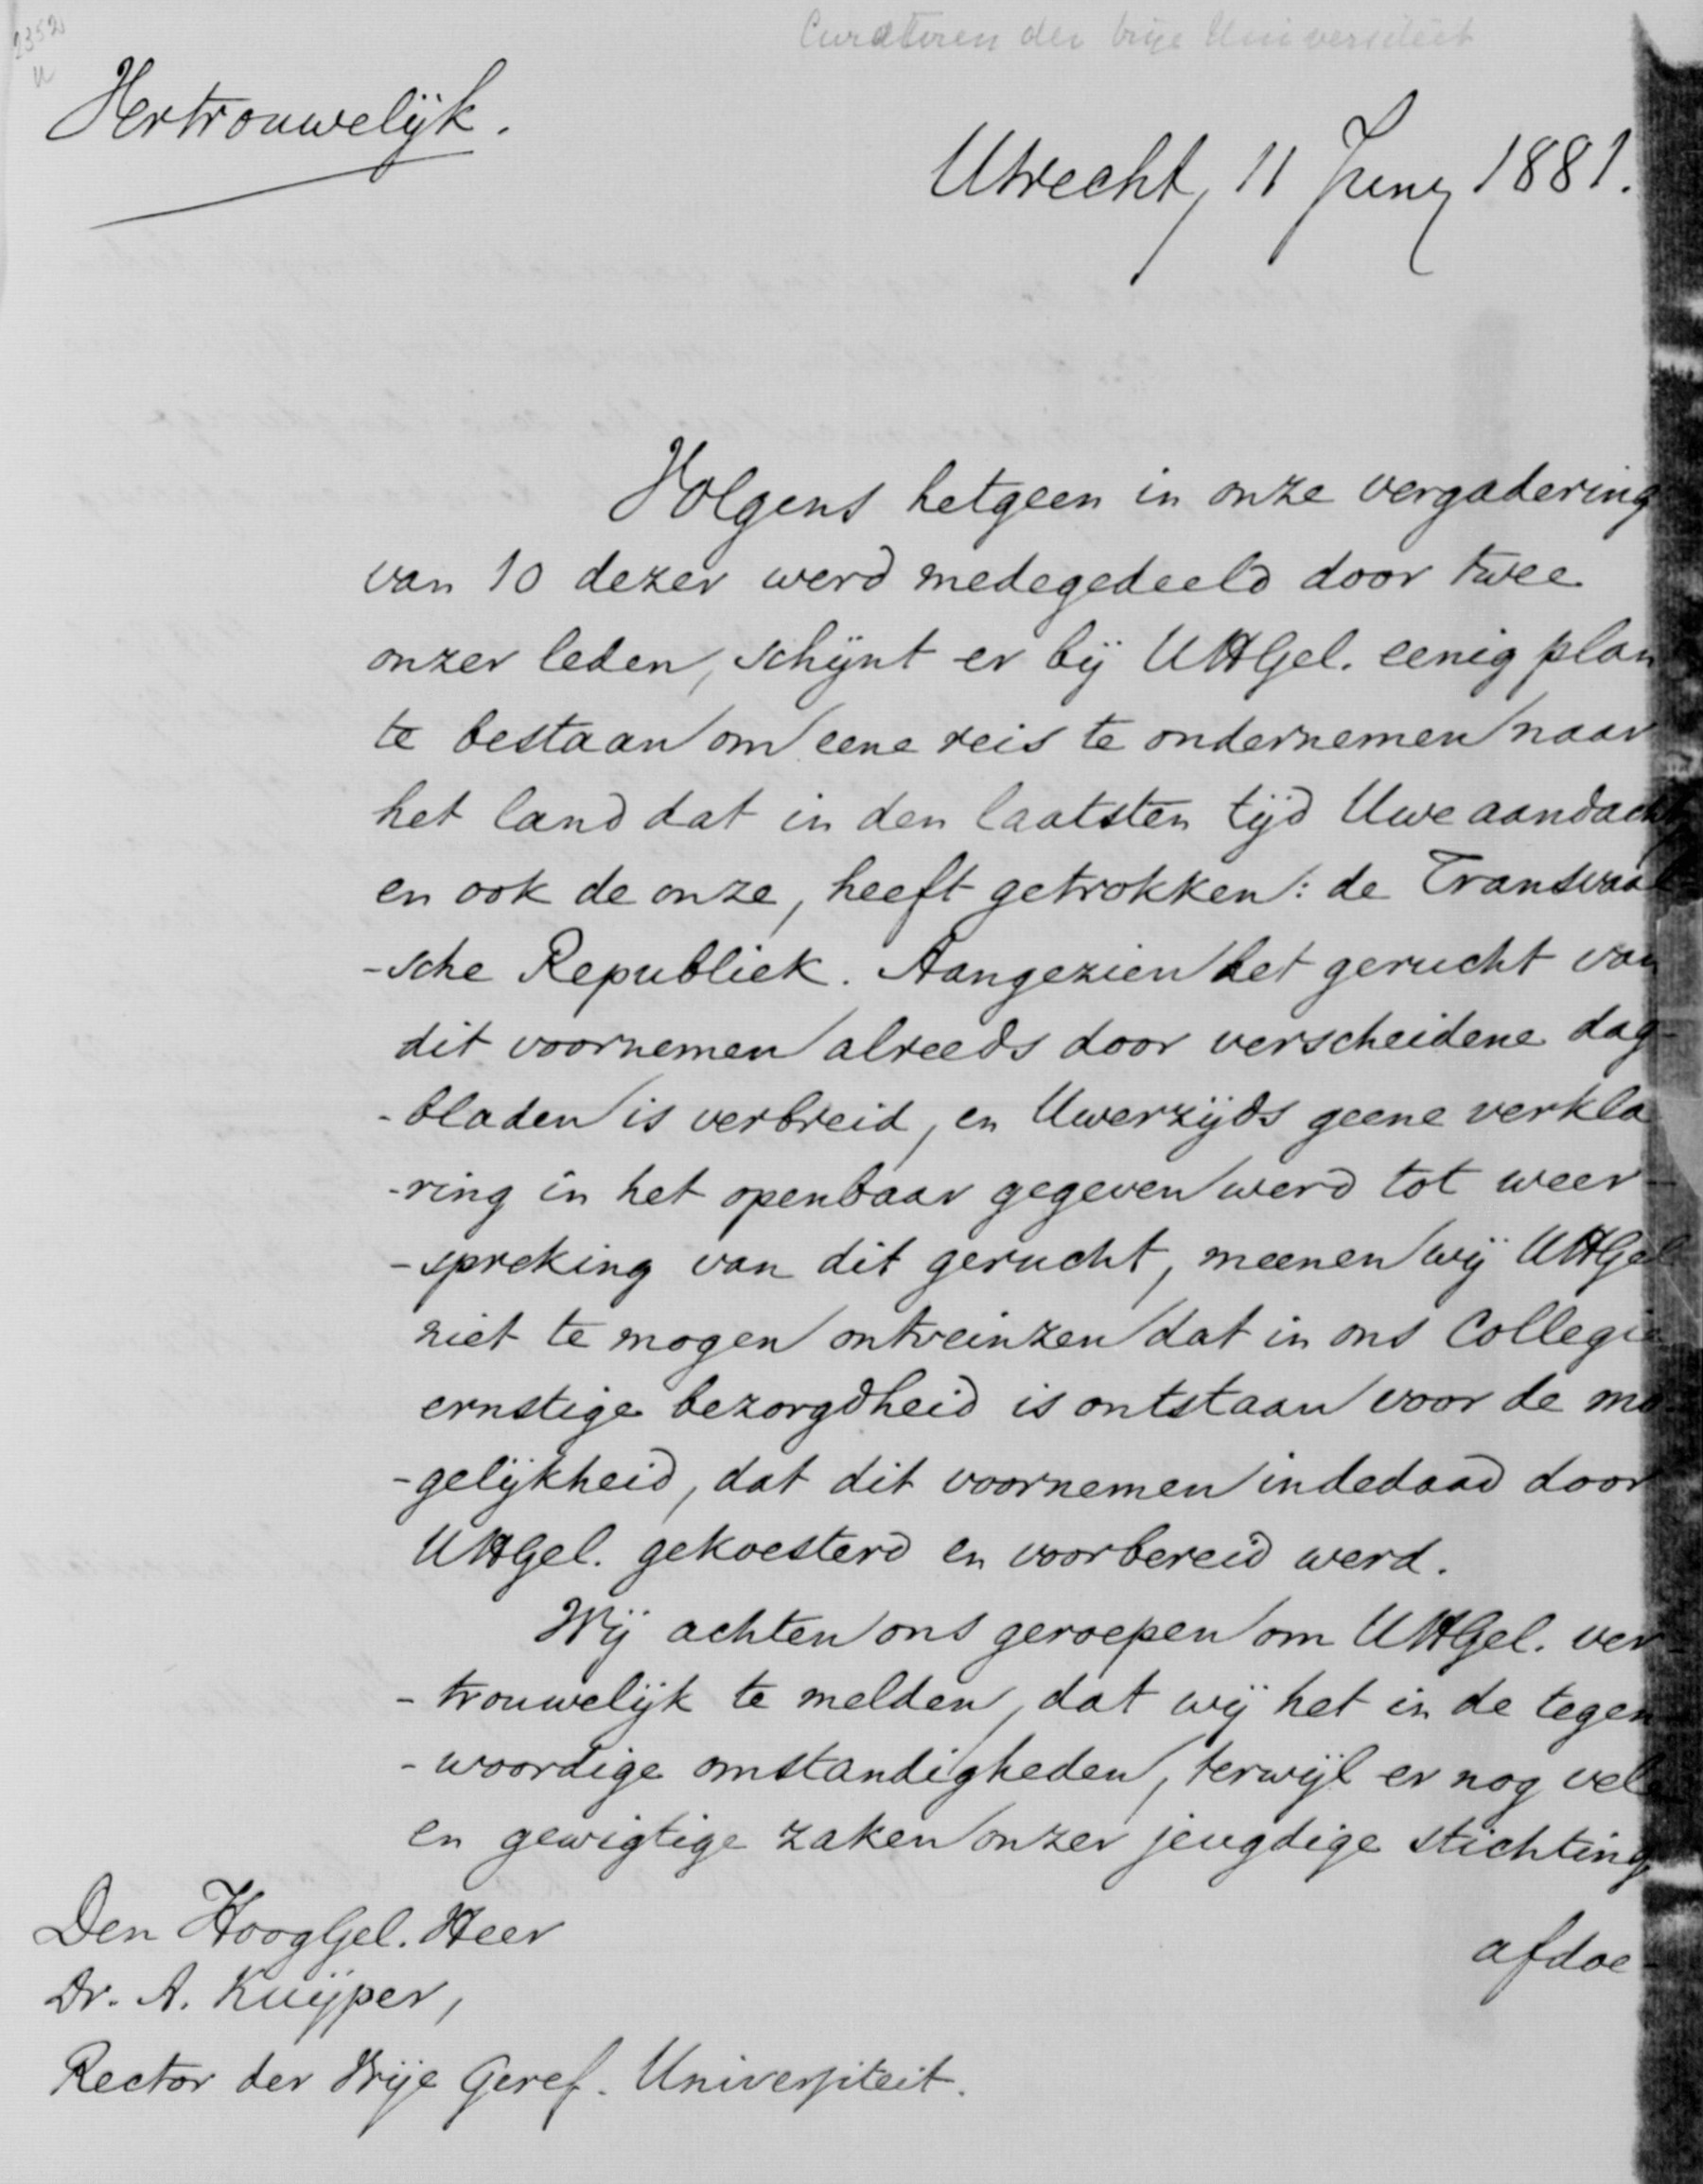 2352
Curatoren der Vrije Universiteit
Vertrouwelijk.
Utrecht, 11 Juny 1881.
Volgens hetgeen in onze vergadering
van 10 dezer werd medegedeeld door twee
onzer leden, schijnt er bij UHGel. eenig plan
te bestaan om eene reis te ondernemen naar
het land dat in den laatsten tijd Uwe aandacht
en ook de onze, heeft getrokken: de Transvaal
-sche Republiek. Aangezien het gerucht van
dit voornemen alreeds door verscheidene dag-
-bladen is verbreid, en Uwerzijds geene verkla
-ring in het openbaar gegeven werd tot weer-
-spreking van dit gerucht, meenen wij UHGel
niet te mogen ontveinzen dat in ons Collegie
ernstige bezorgdheid is ontstaan voor de mo
-gelijkheid, dat dit voornemen indedaad door
UHGel. gekoesterd en voorbereid werd.
Wij achten ons geroepen om UHGel. ver-
-trouwelijk te melden, dat wij het in de tegen
-woordige omstandigheden, terwijl er nog vele
en gewigtige zaken onzer jeugdige stichting
afdoe-
Den HoogGel. Heer
Dr. A. Kuÿper,
Rector der Vrije Geref. Universiteit.